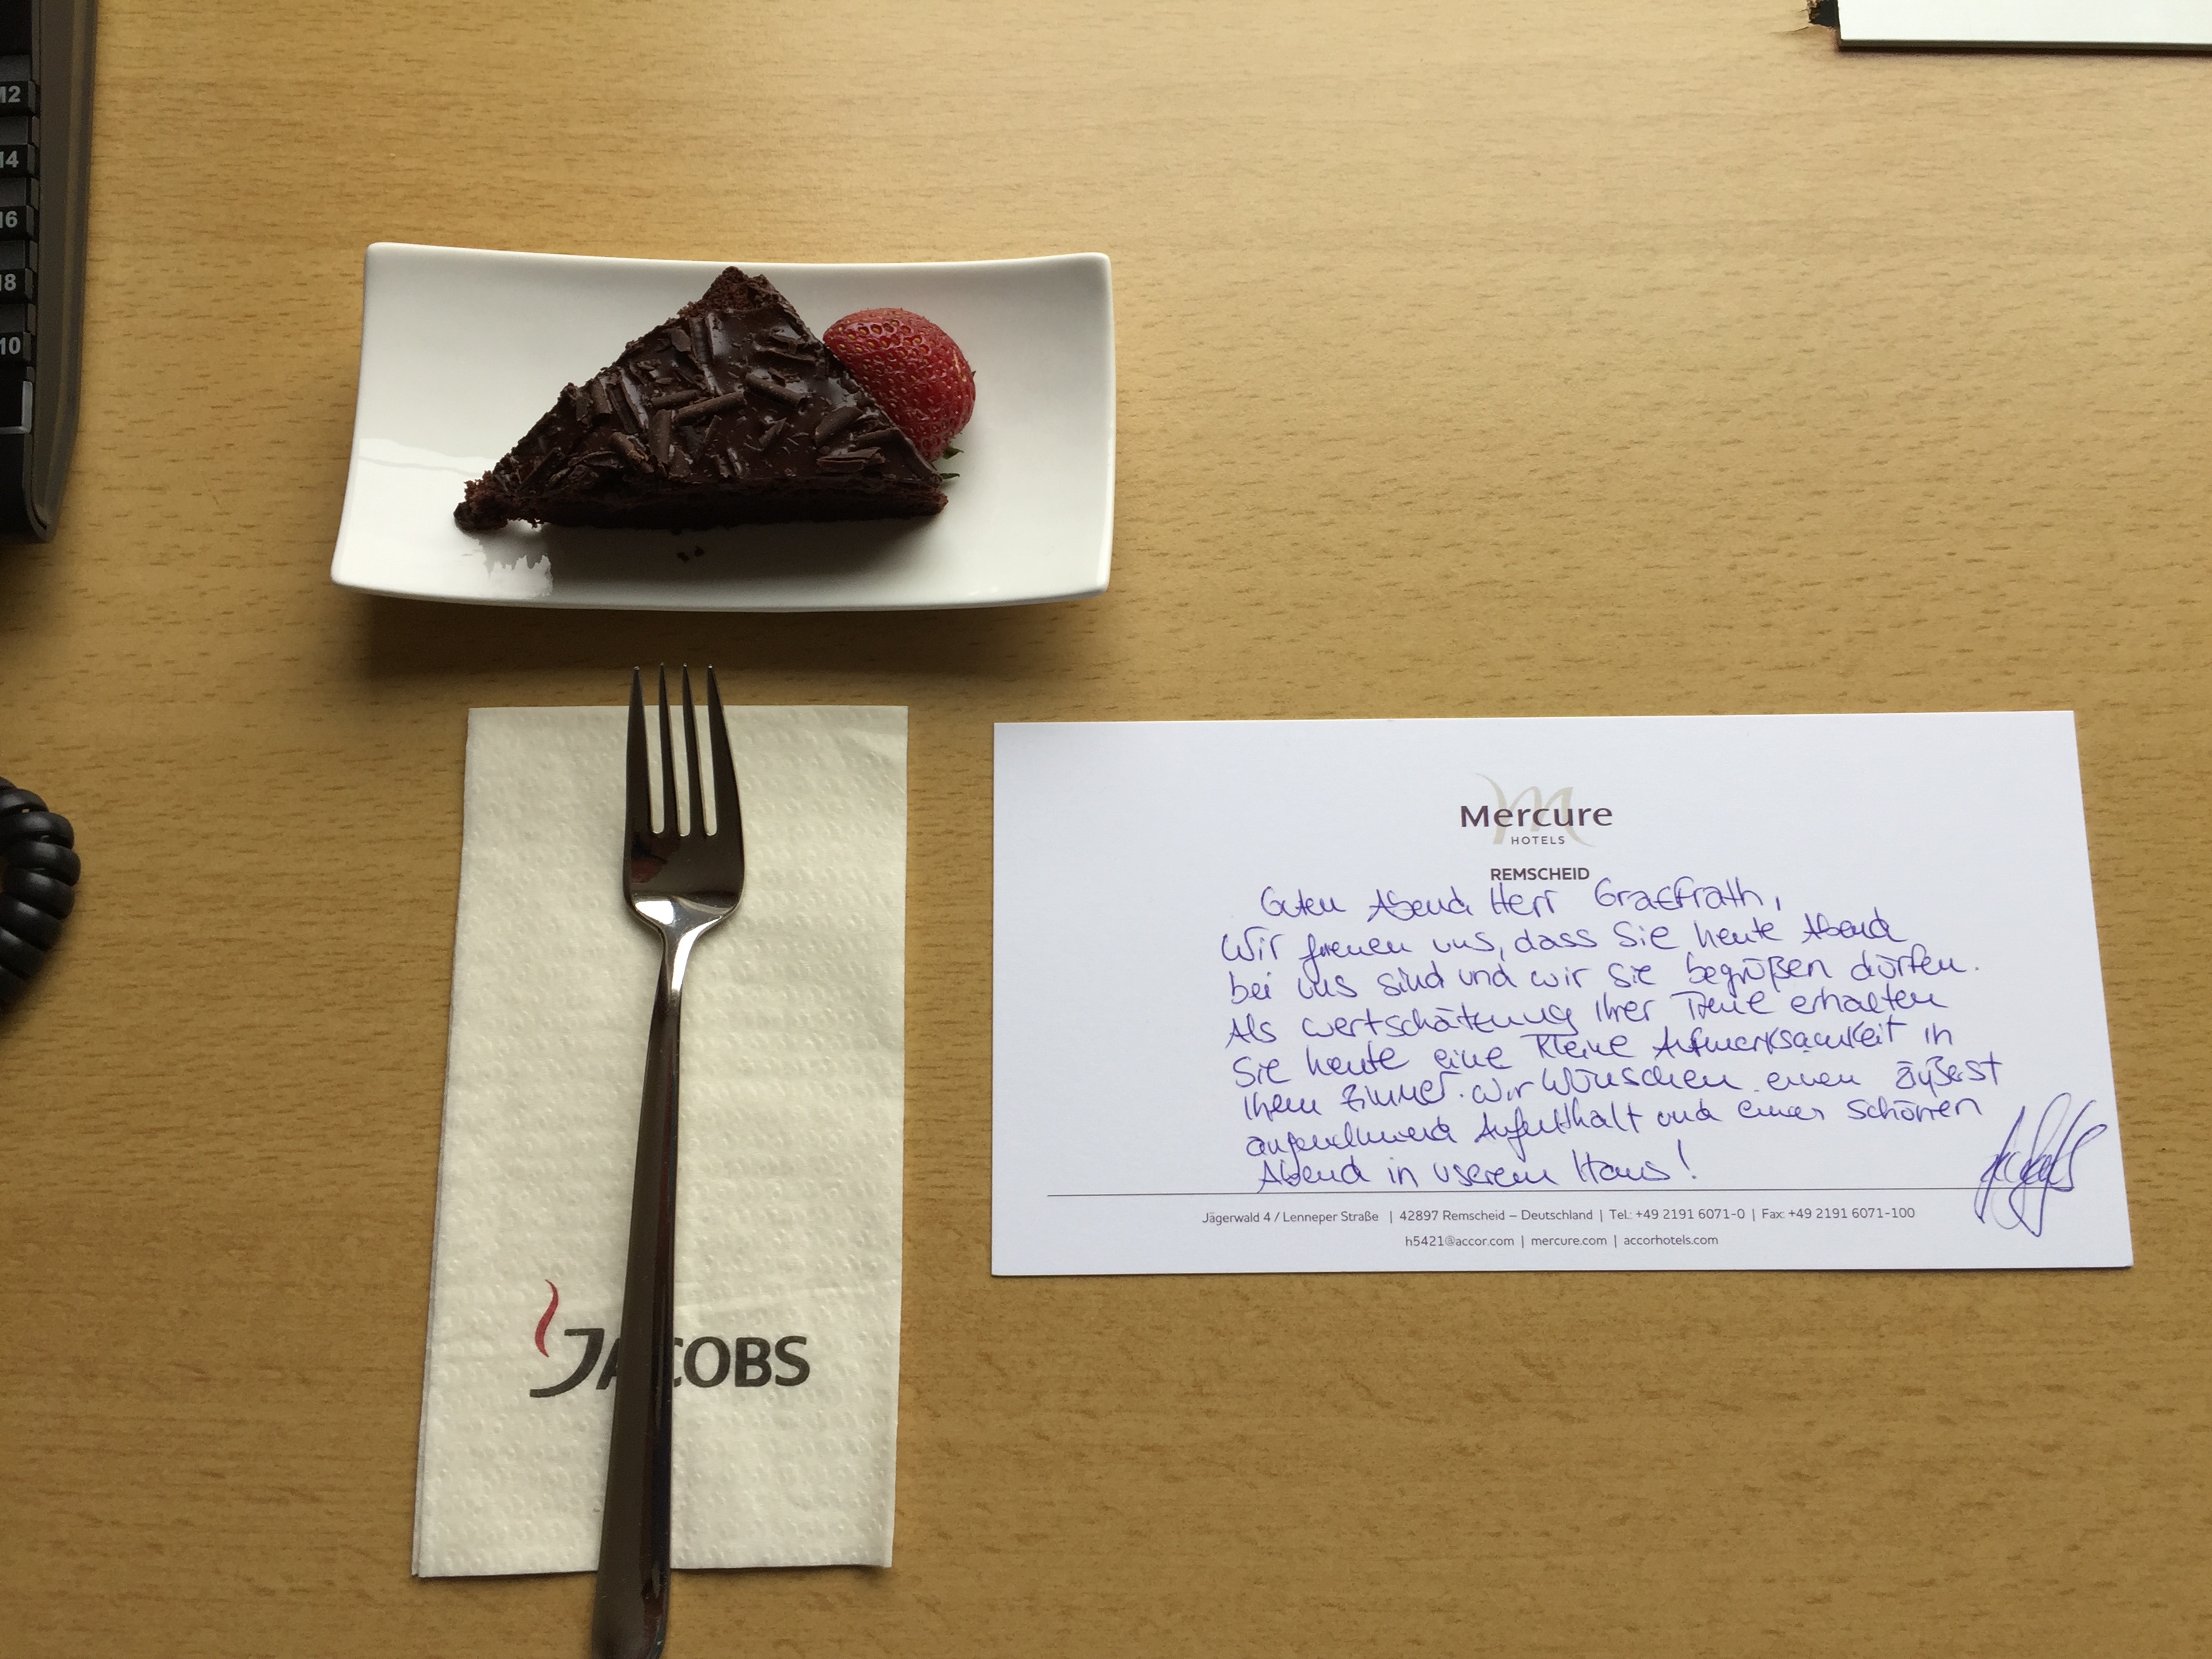 M2
M4
M6
M8
M10
JACOBS
Mercure
HOTELS
REMSCHEID
Guten Abend Herr Graefrath,
Wir freuen uns, dass Sie heute Abend
bei uns sind und wir Sie begrüßen dürfen.
Als Wertschätzung Ihrer Treue erhalten
Sie heute eine kleine Aufmerksamkeit in
Ihrem Zimmer. Wir Wünschen einen äußerst
angenehmend Aufenthalt und einen schönen
Abend in userem Haus!
Jägerwald 4 / Lenneper Straße | 42897 Remscheid – Deutschland | Tel.: +49 2191 6071-0 | Fax: +49 2191 6071-100
h5421@accor.com | mercure.com | accorhotels.com